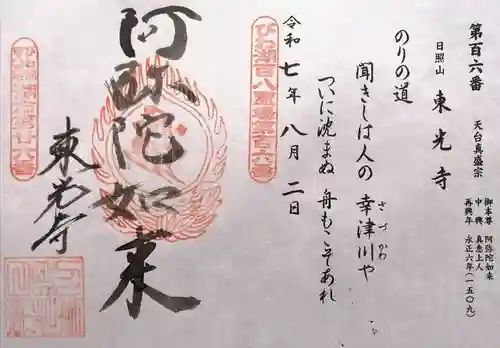 第百六番
天台真盛宗
日照山
東光寺
御本尊 阿弥陀如来
中興 真恵上人
再興年 永正六年(一五〇九)
のりの道
聞きしは人の 幸津川や
さづかわ
ついに沈まぬ 舟もこそあれ
令和七年八月二日
びわ湖百八霊場第百六番
阿弥陀如来
東光寺